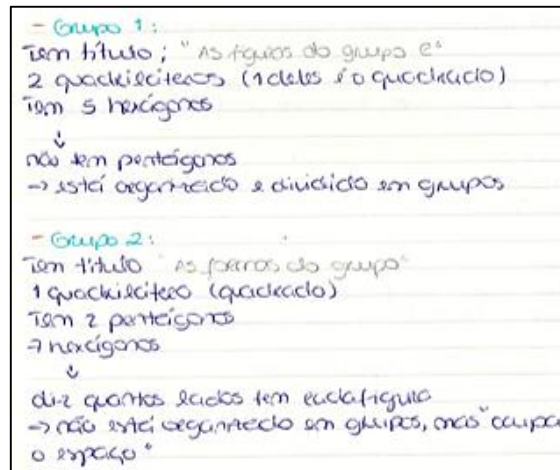 - Grupo 1:
Tem título; "As figuras do grupo e"
2 quadriláteros (1 deles é o quadrado)
Tem 5 hexágonos
↓
não tem pentágonos
→ está organizado e dividido em grupos
- Grupo 2:
Tem título "As formas do grupo"
1 quadrilátero (quadrado)
Tem 2 pentágonos
7 hexágonos
↓
diz quantos lados tem cada figura
→ não está organizado em grupos, mas "ocupa
o espaço"